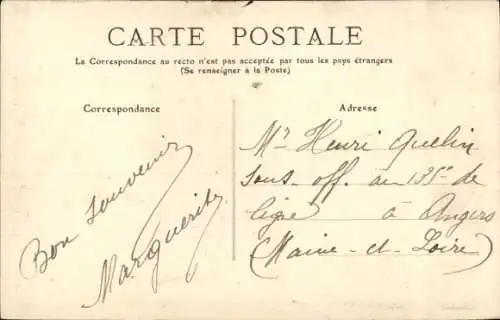 CARTE POSTALE
La Correspondance au recto n'est pas acceptée par tous les pays étrangers
(Se renseigner à la Poste)
Correspondance
Adresse
Bon Souvenir
Marguerite
Mr Henri Quelin
Sous-off. au 135e de
ligne à Angers
(Maine-et-Loire)